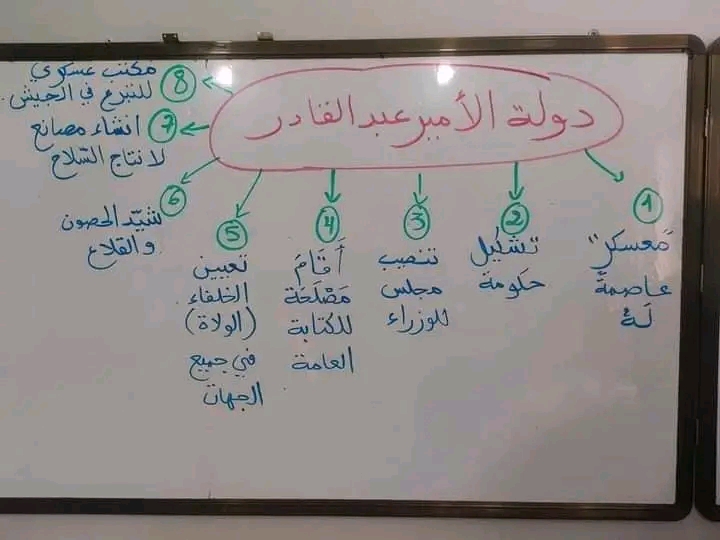 دولة الأمير عبد القادر
1
"معسكر"
عاصمة
لَهُ
2
تشكيل
حكومة
3
تنصيب
مجلس
للوزراء
4
أَقَامَ
مَصْلَحَة
للكتابة
العامة
5
تعيين
الخلفاء
(الولاة)
في جميع
الجهات
6
شيّد الحصون
والقلاع
7
انشاء مصانع
لانتاج السّلاح
8
مكتب عسكري
للتبرع في الجيش.